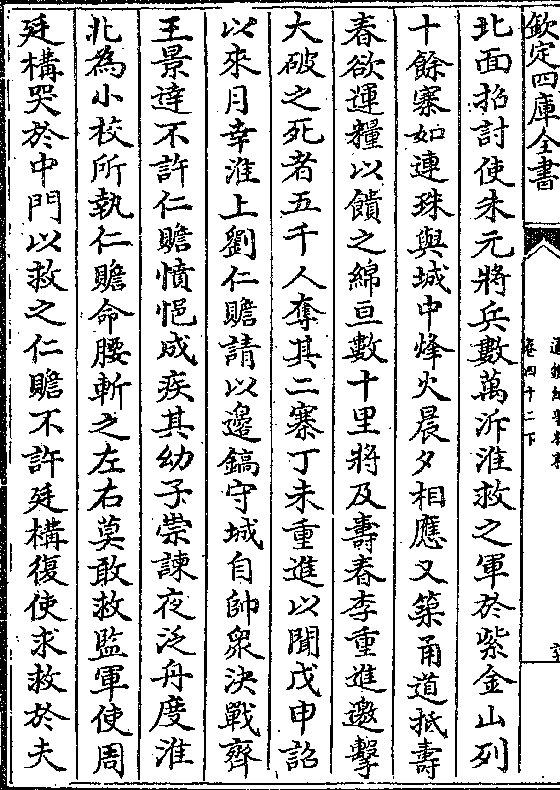 欽定四庫全書
卷四十二下
北面招討使朱元將兵數萬泝淮救之軍於紫金山列
十餘寨如連珠與城中烽火晨夕相應又築甬道抵壽
春欲運糧以饋之綿亘數十里將及壽春李重進邀擊
大破之死者五千人奪其二寨丁未重進以聞戊申詔
以來月幸淮上劉仁贍請以邊鎬守城自帥衆決戰齊
王景達不許仁贍憤悒成疾其幼子崇諫夜泛舟度淮
北為小校所執仁贍命腰斬之左右莫敢救監軍使周
廷構哭於中門以救之仁贍不許廷構復使求救於夫